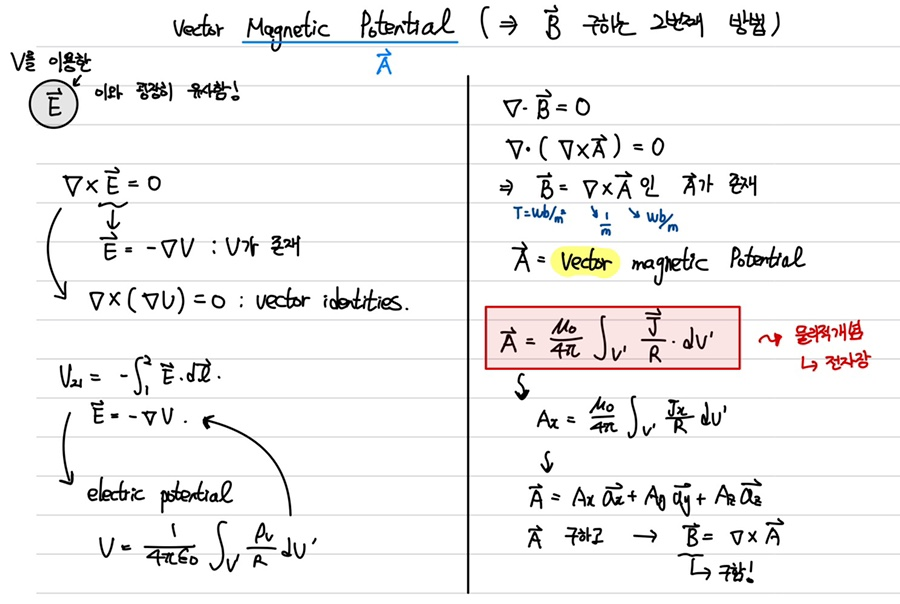 Vector Magnetic Potential (⇒ B⃗ 구하는 2번째 방법)
A⃗
V를 이용한
E⃗ 이와 굉장히 유사함!
∇×E⃗ = 0
↓
E⃗ = -∇V : V가 존재
∇×(∇V) = 0 : vector identities.
V₂₁ = -∫₁² E⃗·dl⃗.
E⃗ = -∇V.
electric potential
V = 1/4πε₀ ∫V' ρv/R dV'
∇·B⃗ = 0
∇·(∇×A⃗) = 0
⇒ B⃗ = ∇×A⃗ 인 A⃗가 존재
T=wb/m² 1/m wb/m
A⃗ = Vector magnetic Potential
A⃗ = μ₀/4π ∫V' J⃗/R · dV' → 물리적개념
↳ 전자장
Ax = μ₀/4π ∫V' Jx/R dV'
A⃗ = Ax a⃗x + Ay a⃗y + Az a⃗z
A⃗ 구하고 → B⃗ = ∇×A⃗
↳ 구함!